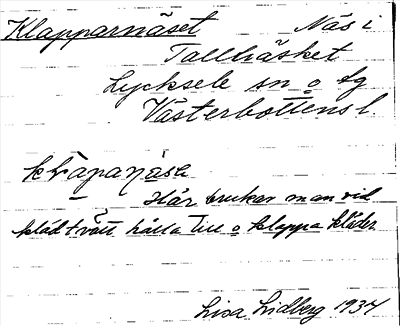 Klapparnäset Näs i
Tallträsket
Lycksele sn o lg
Västerbottens l.
Här brukar man vid
klädtvätt hålla till o klappa kläder
Lisa Lidberg 1934